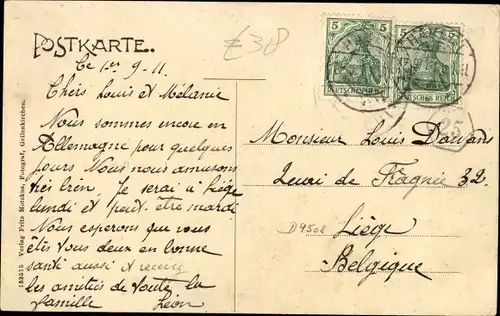 POSTKARTE.
£ 38
Ce 1er 9-11.
Chers Louis et Mélanie
Nous sommes encore en
Allemagne pour quelques
jours Nous nous amusons
très bien, Je serai à Liège
lundi et peut-être mardi
Nous esperons que vous
êtes tous deux en bonne
santé aussi et recevez
les amitiés de toute la
famille Léon
5 5
DEUTSCHES REICH DEUTSCHES REICH
25
Monsieur Louis
de Fragnée 32.
D9508
Liège
Belgique
153575 Verlag Fritz Monkus, Fotograf, Geilenkirchen.